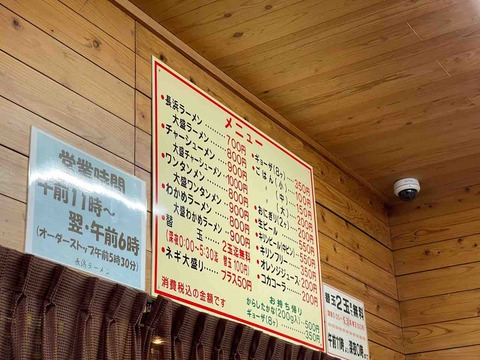 営業時間
午前11時～
翌・午前6時
(オーダーストップ午前5時30分)
長浜ラーメン
メニュー
•長浜ラーメン……700円
大盛ラーメン……800円
•チャーシューメン……900円
大盛チャーシューメン…1000円
•ワンタンメン……800円
大盛ワンタンメン……900円
•わかめラーメン……800円
大盛わかめラーメン……900円
•替　玉……2玉迄無料
(深夜0:00～5:30迄 替玉 100円)
•ネギ大盛り……プラス50円
消費税込の金額です
•ギョーザ(8ヶ)……350円
•ごはん(小)
(中)
(大)
•おにぎり(2ヶ)
•生ビール
•キリンビール(ビン)
•キリンフリー
•オレンジジュース……200円
•コカコーラ……200円
お持ち帰り
からしたかな(200g入)…500円
ギョーザ(8ヶ)……350円
替玉2玉無料